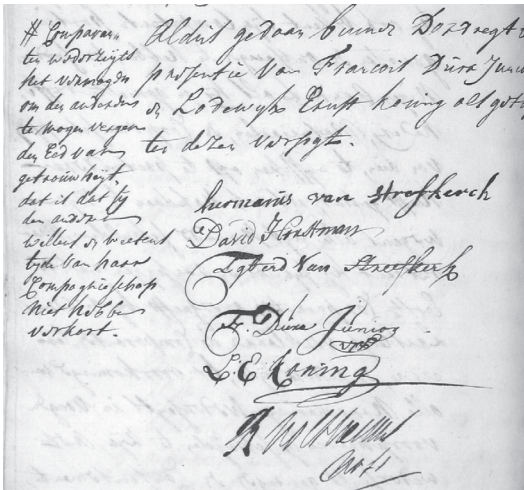 # Comparan-
ten wederzeyts
het vermogen
om den anderen
te mogen vergen
den Eed van
getrouwheyt,
dat is dat zy
den anderen
willens & weetens
tyde van haar
Compagnieschap
niet hebbe
verkort.
Aldus gedaan binnen Dordregt
presentie van Francois Dura Junior
& Lodewyk Ernst Koning als get
ten dezen verzogt.
hermanus van Streefkerck
David Hoffman
Egberd Van Streefkerk
Fr. Dura Junior
L: E. Koning
Nots